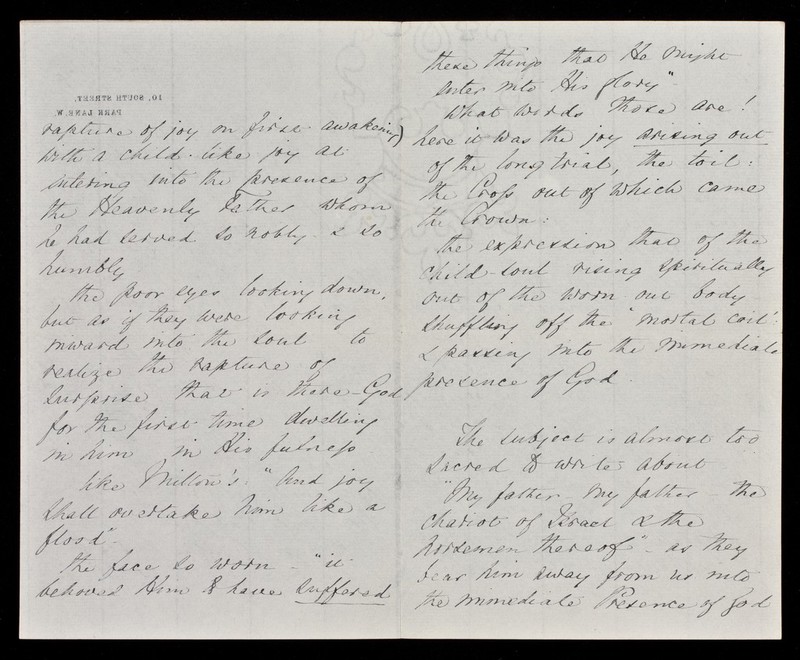 10, SOUTH STREET,
PARK LANE. W.
rapture of joy on first awakening)
with a child-like joy at
entering into the presence of
the Heavenly Father Whom
he had served so nobly & so
humbly
the poor eyes looking down,
but as if they were looking
inward into the soul to
realize the rapture of
surprise that is there - God
for the first time dwelling
in him in His fulness
like Milton's: "And joy
shall overtake him like a
flood".
the face so worn - "it
behoved Him to have suffered
these things that He might
enter into His glory".
What words those are!
here it was the joy arising out
of the long trial, the toil:
the Cross out of which came
the Crown:
the expression that of the
child-soul rising spiritually
out of the worn out body
shuffling off the "mortal coil":
& passing into the immediate
presence of God.
The subject is almost too
sacred to write about
"My father - my father - the
chariot of Israel & the
horsemen thereof" - as they
bear him away from us into
the immediate Presence of God